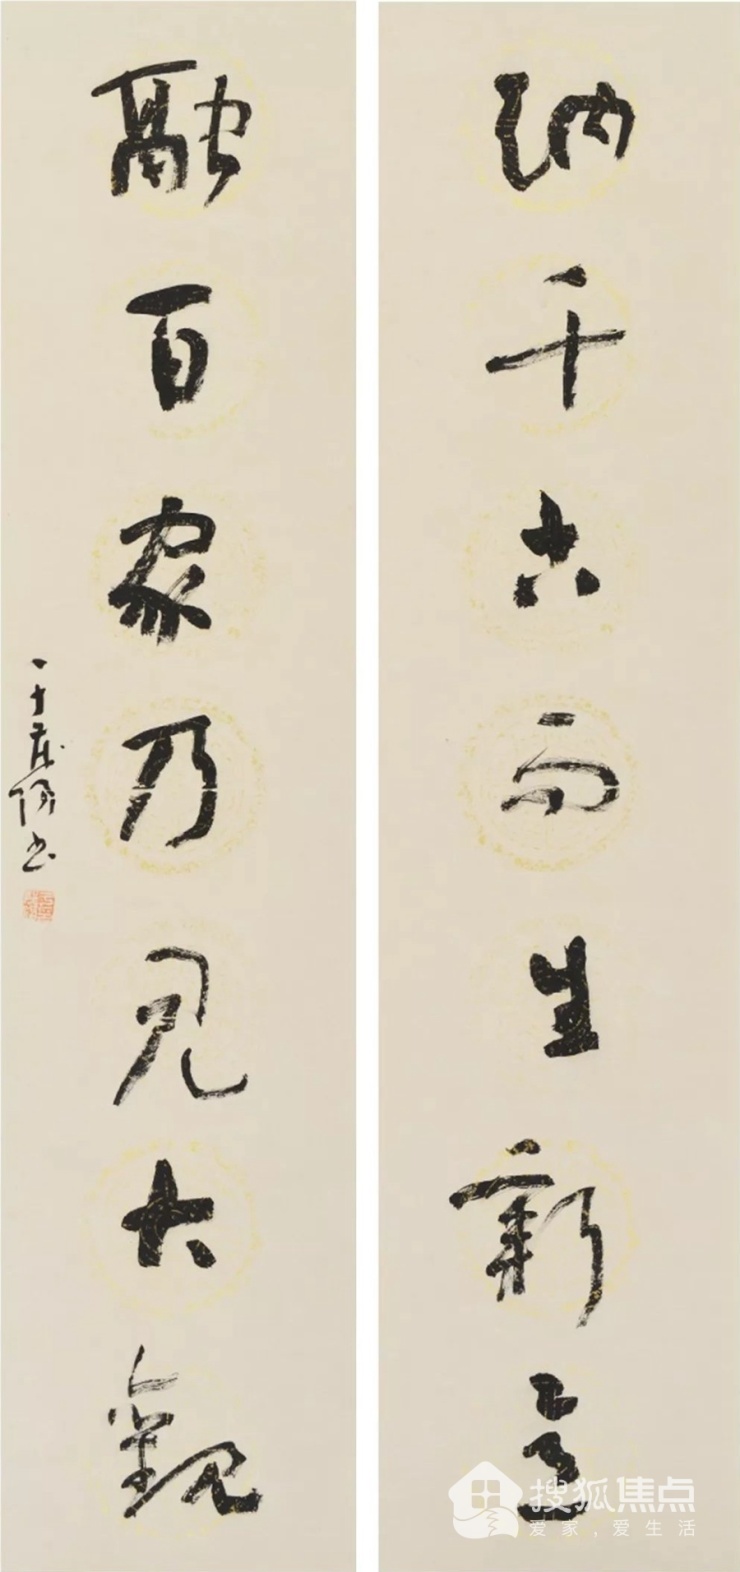 纳千古而生新意
融百家乃见大观
于茂阳书
搜狐焦点
爱家，爱生活